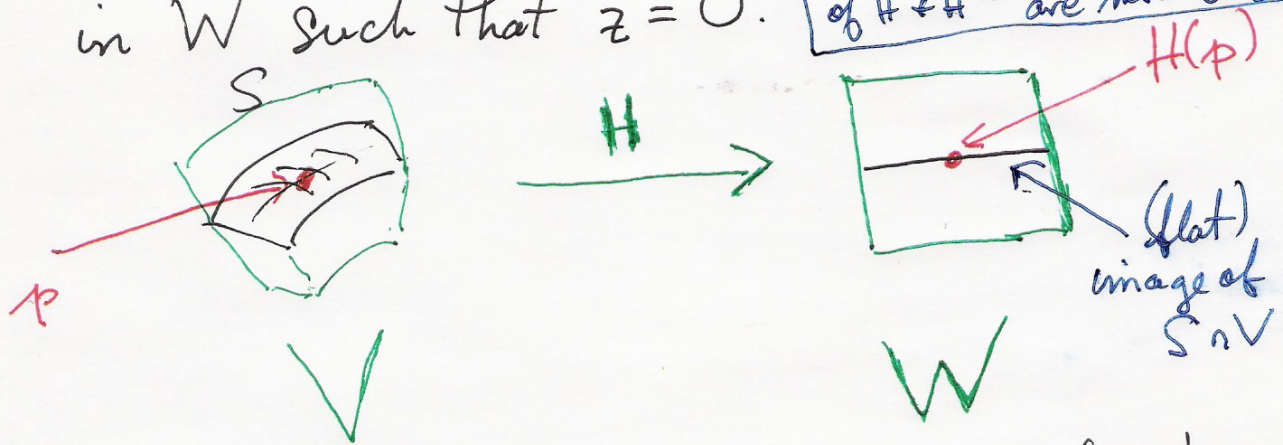 in W such that z = 0.
of H & H are
S
H
H(p)
p
(flat)
image of
S ∩ V
V
W